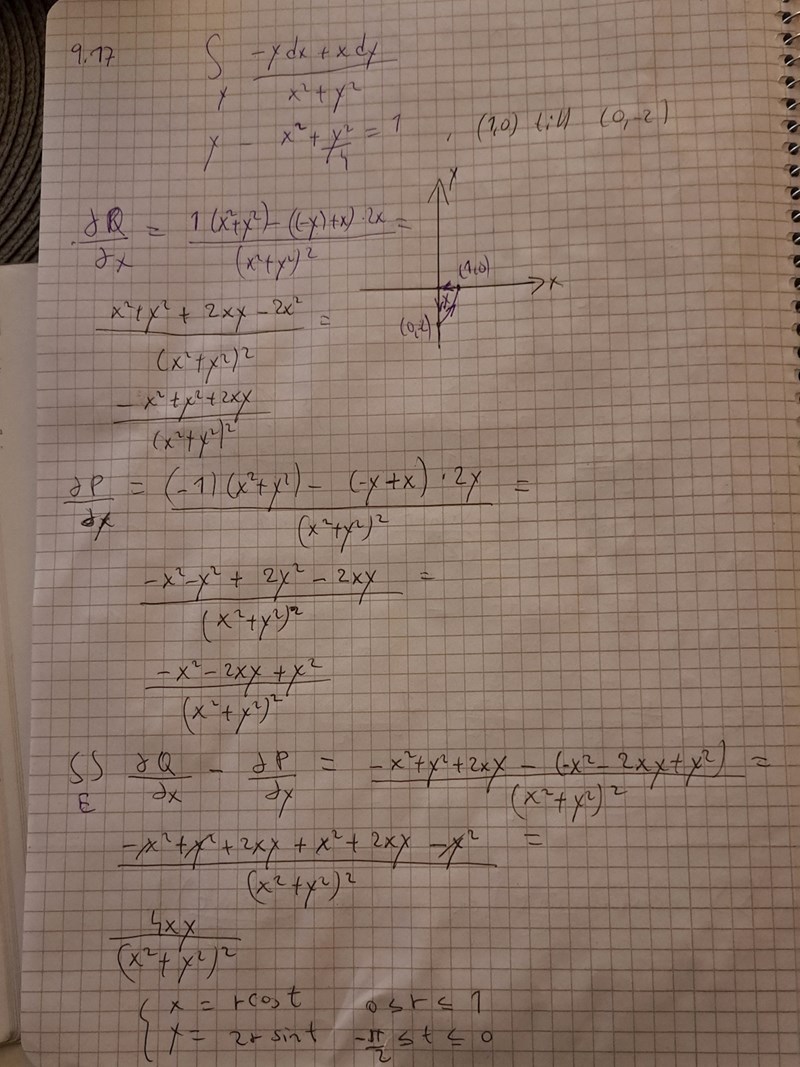 9.17 ∫_γ (-y dx + x dy)/(x² + y²)
γ - x² + y²/4 = 1 , (1,0) till (0,-2)
y
x
(1,0)
(0,-2)
∂Q/∂x = (1(x²+y²) - ((-y)+x)·2x)/(x²+y²)² =
(x²+y² + 2xy - 2x²)/(x²+y²)² =
(-x²+y²+2xy)/(x²+y²)²
∂P/∂y = ((-1)(x²+y²) - (-y+x)·2y)/(x²+y²)² =
(-x²-y² + 2y² - 2xy)/(x²+y²)² =
(-x² - 2xy + y²)/(x²+y²)²
∬_E ∂Q/∂x - ∂P/∂y = (-x²+y²+2xy - (-x² - 2xy + y²))/(x²+y²)² =
(-x²+y²+2xy + x² + 2xy - y²)/(x²+y²)² =
4xy/(x²+y²)²
{ x = r cos t 0 ≤ r ≤ 1
y = 2r sin t -π/2 ≤ t ≤ 0